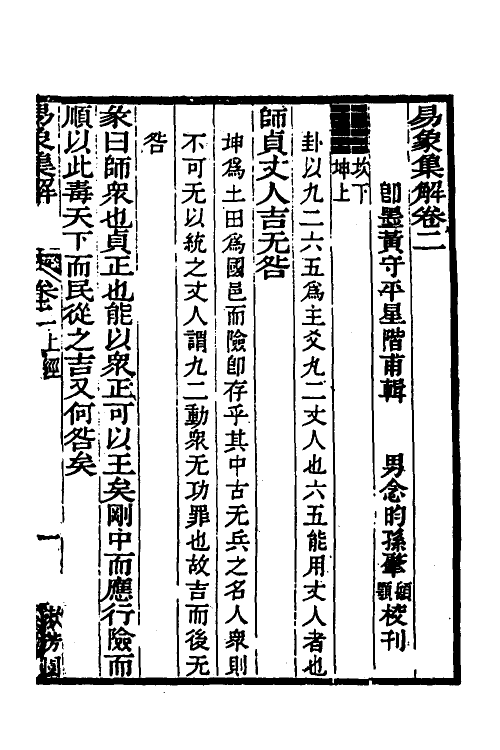 易象集解卷二
卽墨黃守平星階甫輯　男念昀孫肇顥校刊
坎下
坤上
卦以九二六五爲主爻九二丈人也六五能用丈人者也
師貞丈人吉无咎
坤爲土田爲國邑而險卽存乎其中古无兵之名人衆則
不可无以統之丈人謂九二動衆无功罪也故吉而後无
咎
彖曰師衆也貞正也能以衆正可以王矣剛中而應行險而
順以此毒天下而民從之吉又何咎矣
易象集解
卷二　上經
一
漱芳園